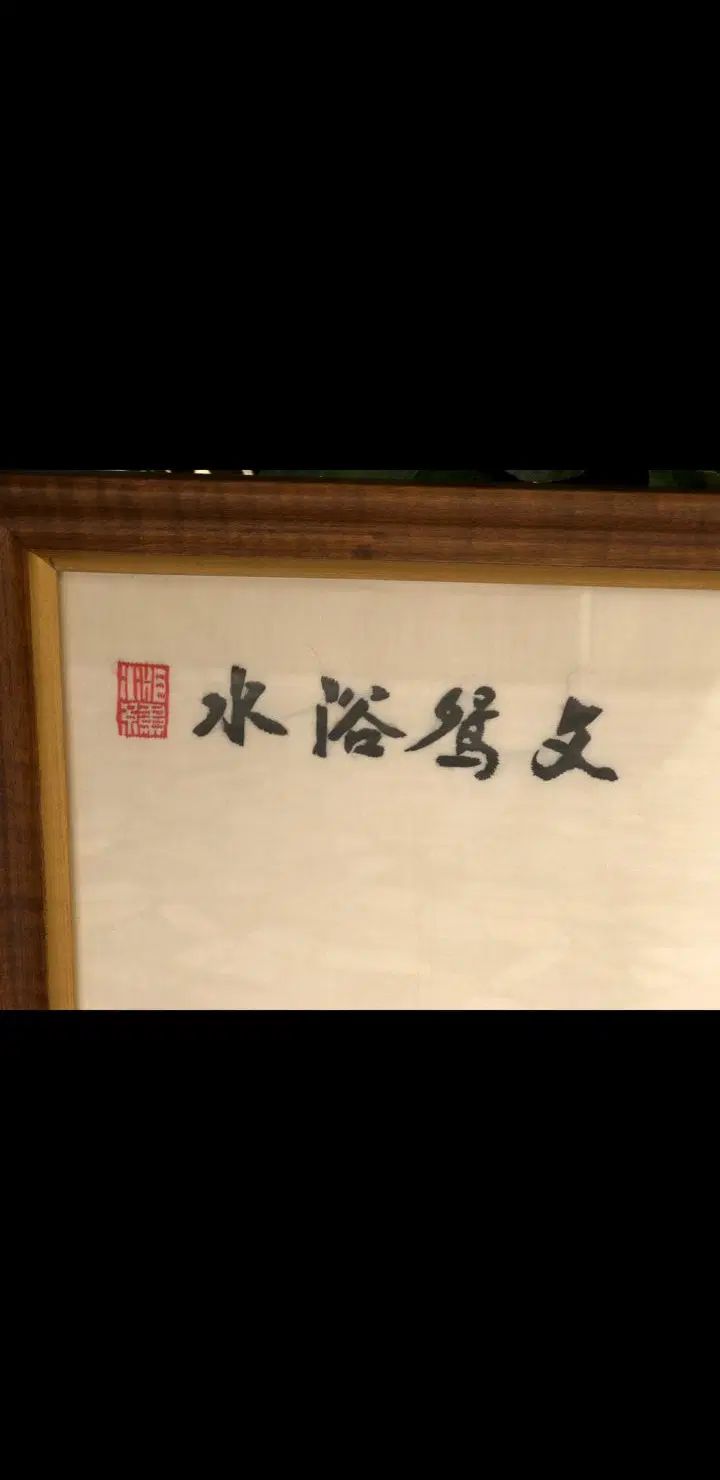 文鴛浴水